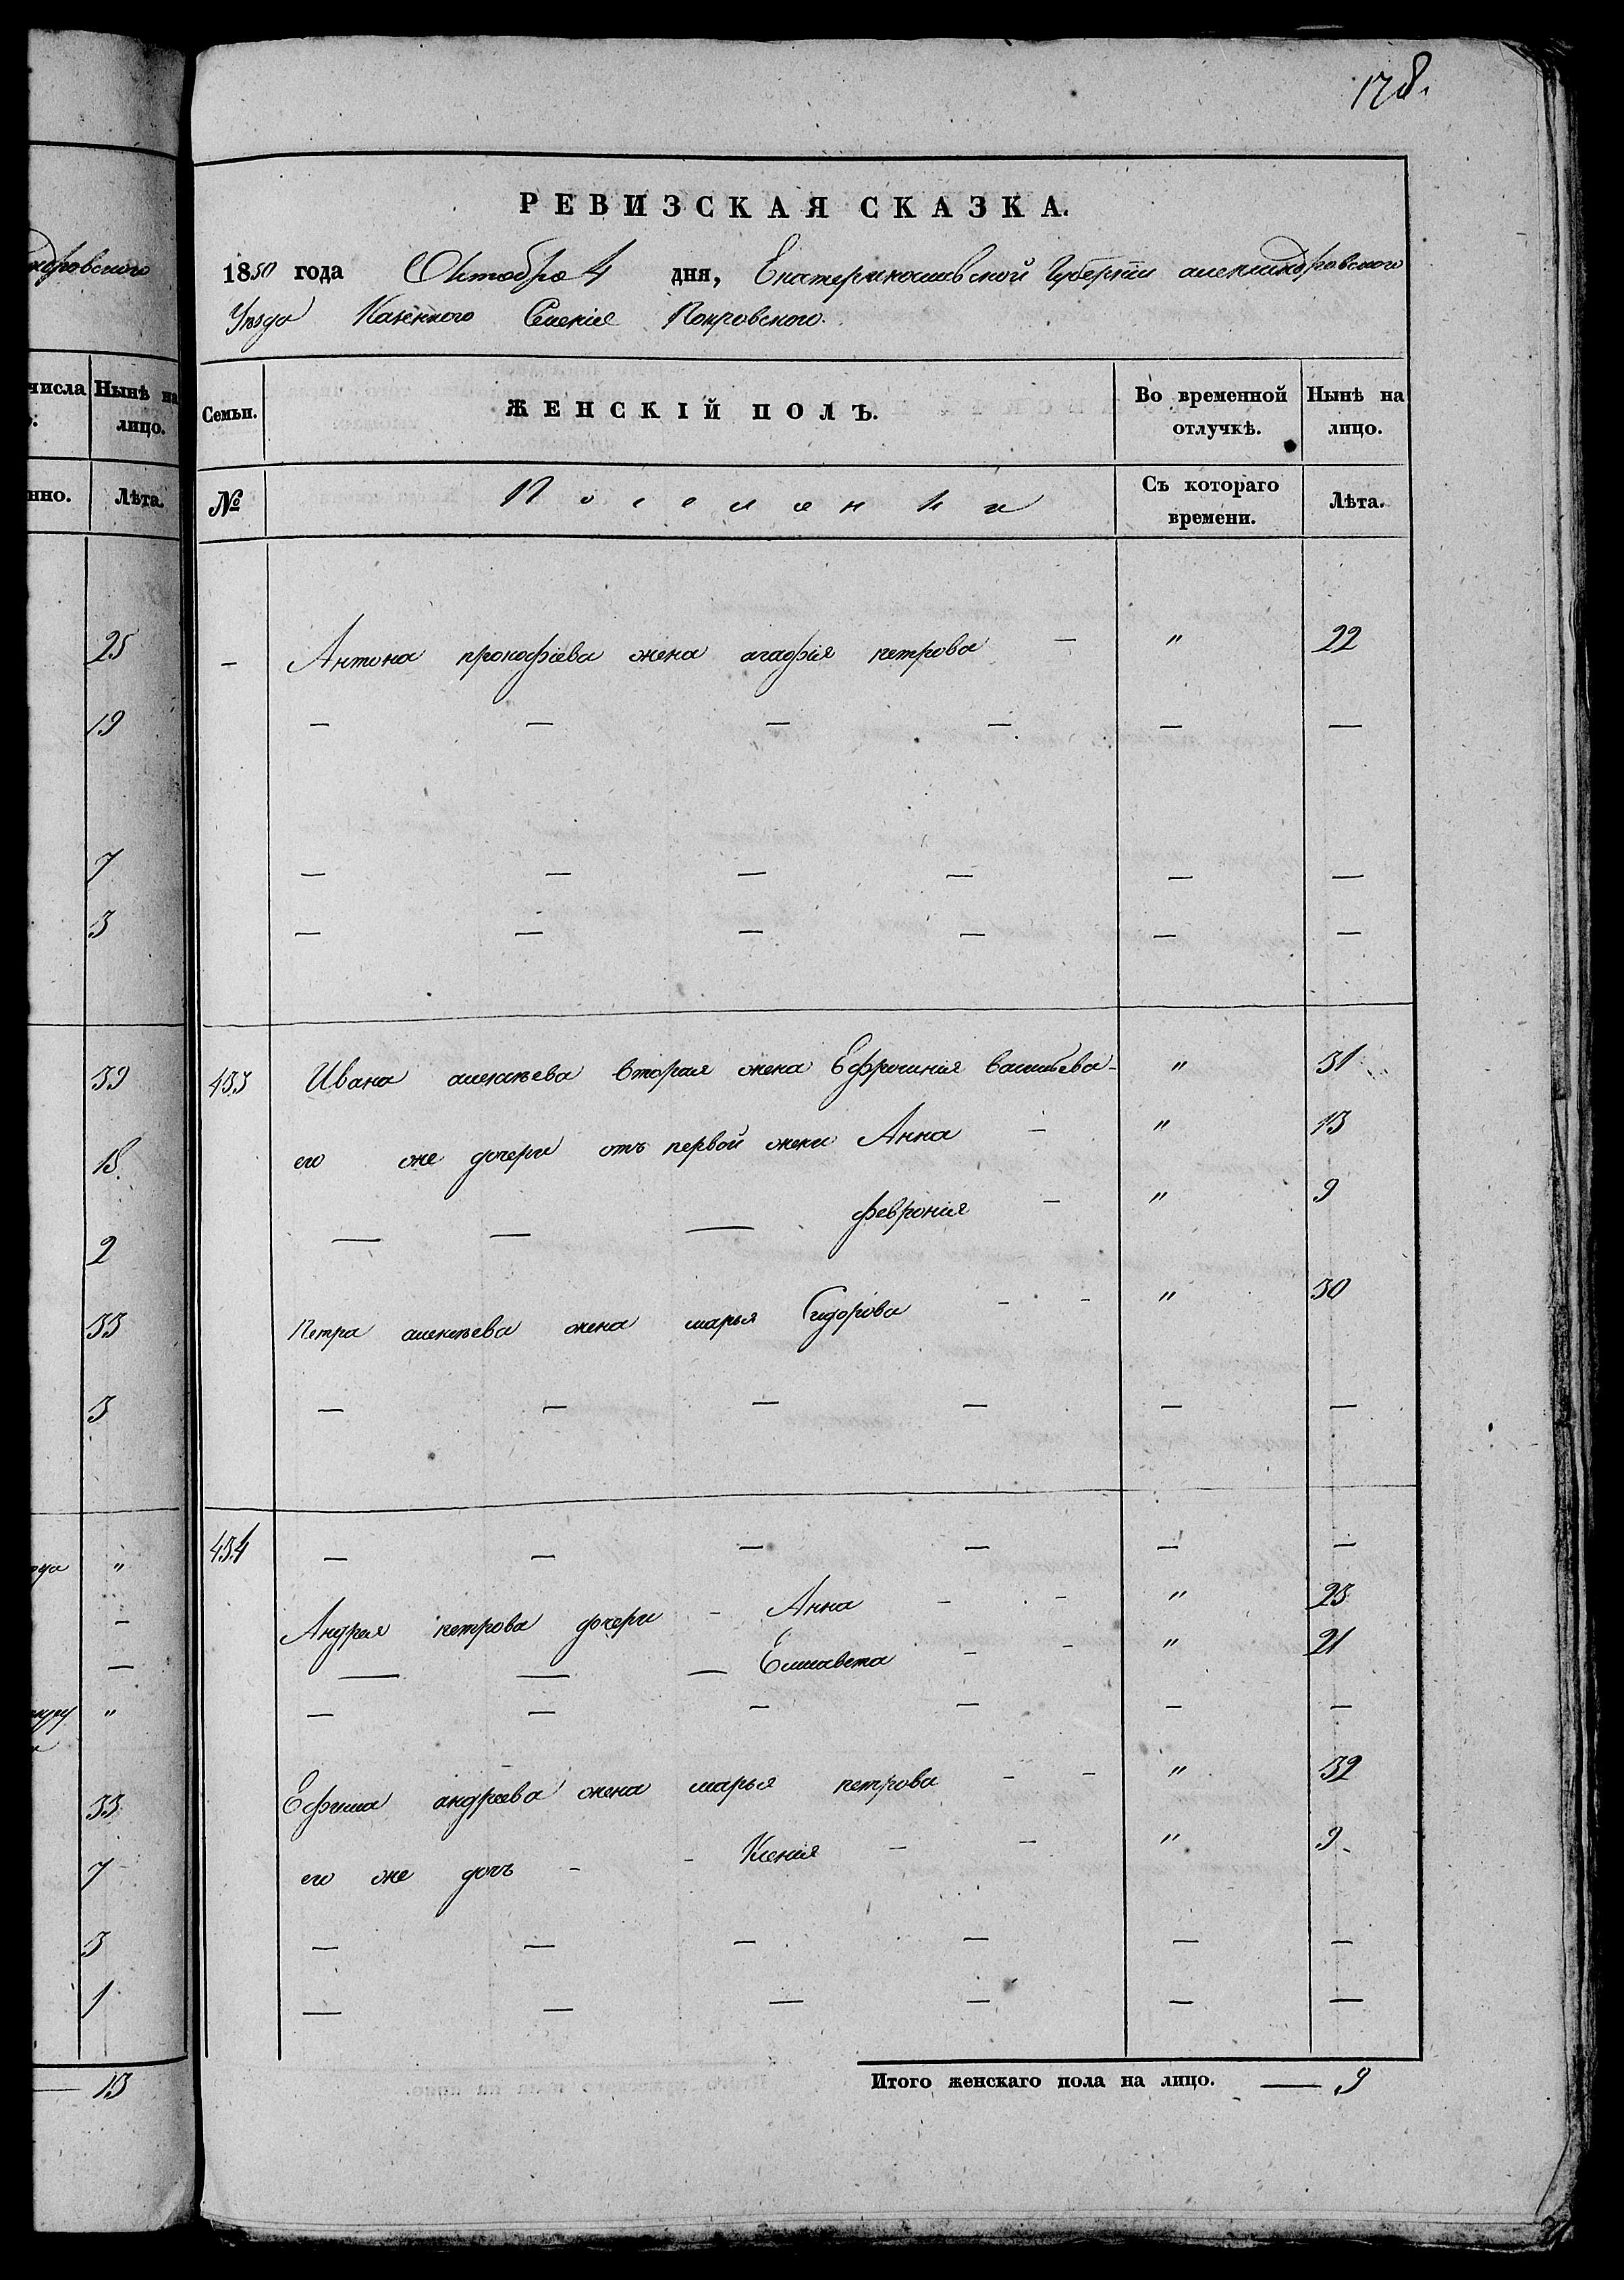 178.
РЕВИЗСКАЯ СКАЗКА.
1850 года Октября 4 дня, Екатеринославской Губерніи александровского
Уезда Казенного Селенія Покровского.
ндровского
числа Нынѣ на лицо.
нно. Лѣта.
Семьи. ЖЕНСКІЙ ПОЛЪ. Во временной отлучкѣ. Нынѣ на лицо.
№ Поселенки Съ котораго времени. Лѣта.
25
19
7
3
39
18.
2
33
3
"
—
—
"
33
7
3
1
— 13
— Антона прокофіева жена агафія петрова — " 22
— — — — — —
— — — — — —
— — — — — —
433 Ивана алексѣева вторая жена Ефросинія васильева - " 31
его же дочери отъ первой жены Анна — " 13
— — — феврония — " 9
Петра алексѣева жена марья Сидорова - - " 30
— — — — — —
434 — — — — — —
Андрея петрова дочери - Анна - - " 23
— — — Елисавета - - " 21
— — — — — —
Ефима андреева жена марья петрова - - " 32
его же дочь - - Ксенія - - " 9
— — — — — —
— — — — — —
Итого женскаго пола на лицо. — 9